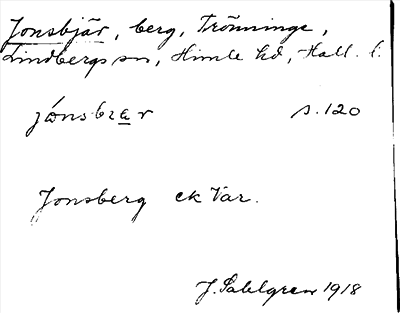 Jonsbjär, berg, Trönninge,
Lindbergs sn, Himle hd, Hall. l.
jónsbrar s. 120
Jonsberg ek Var.
J. Sahlgren 1918